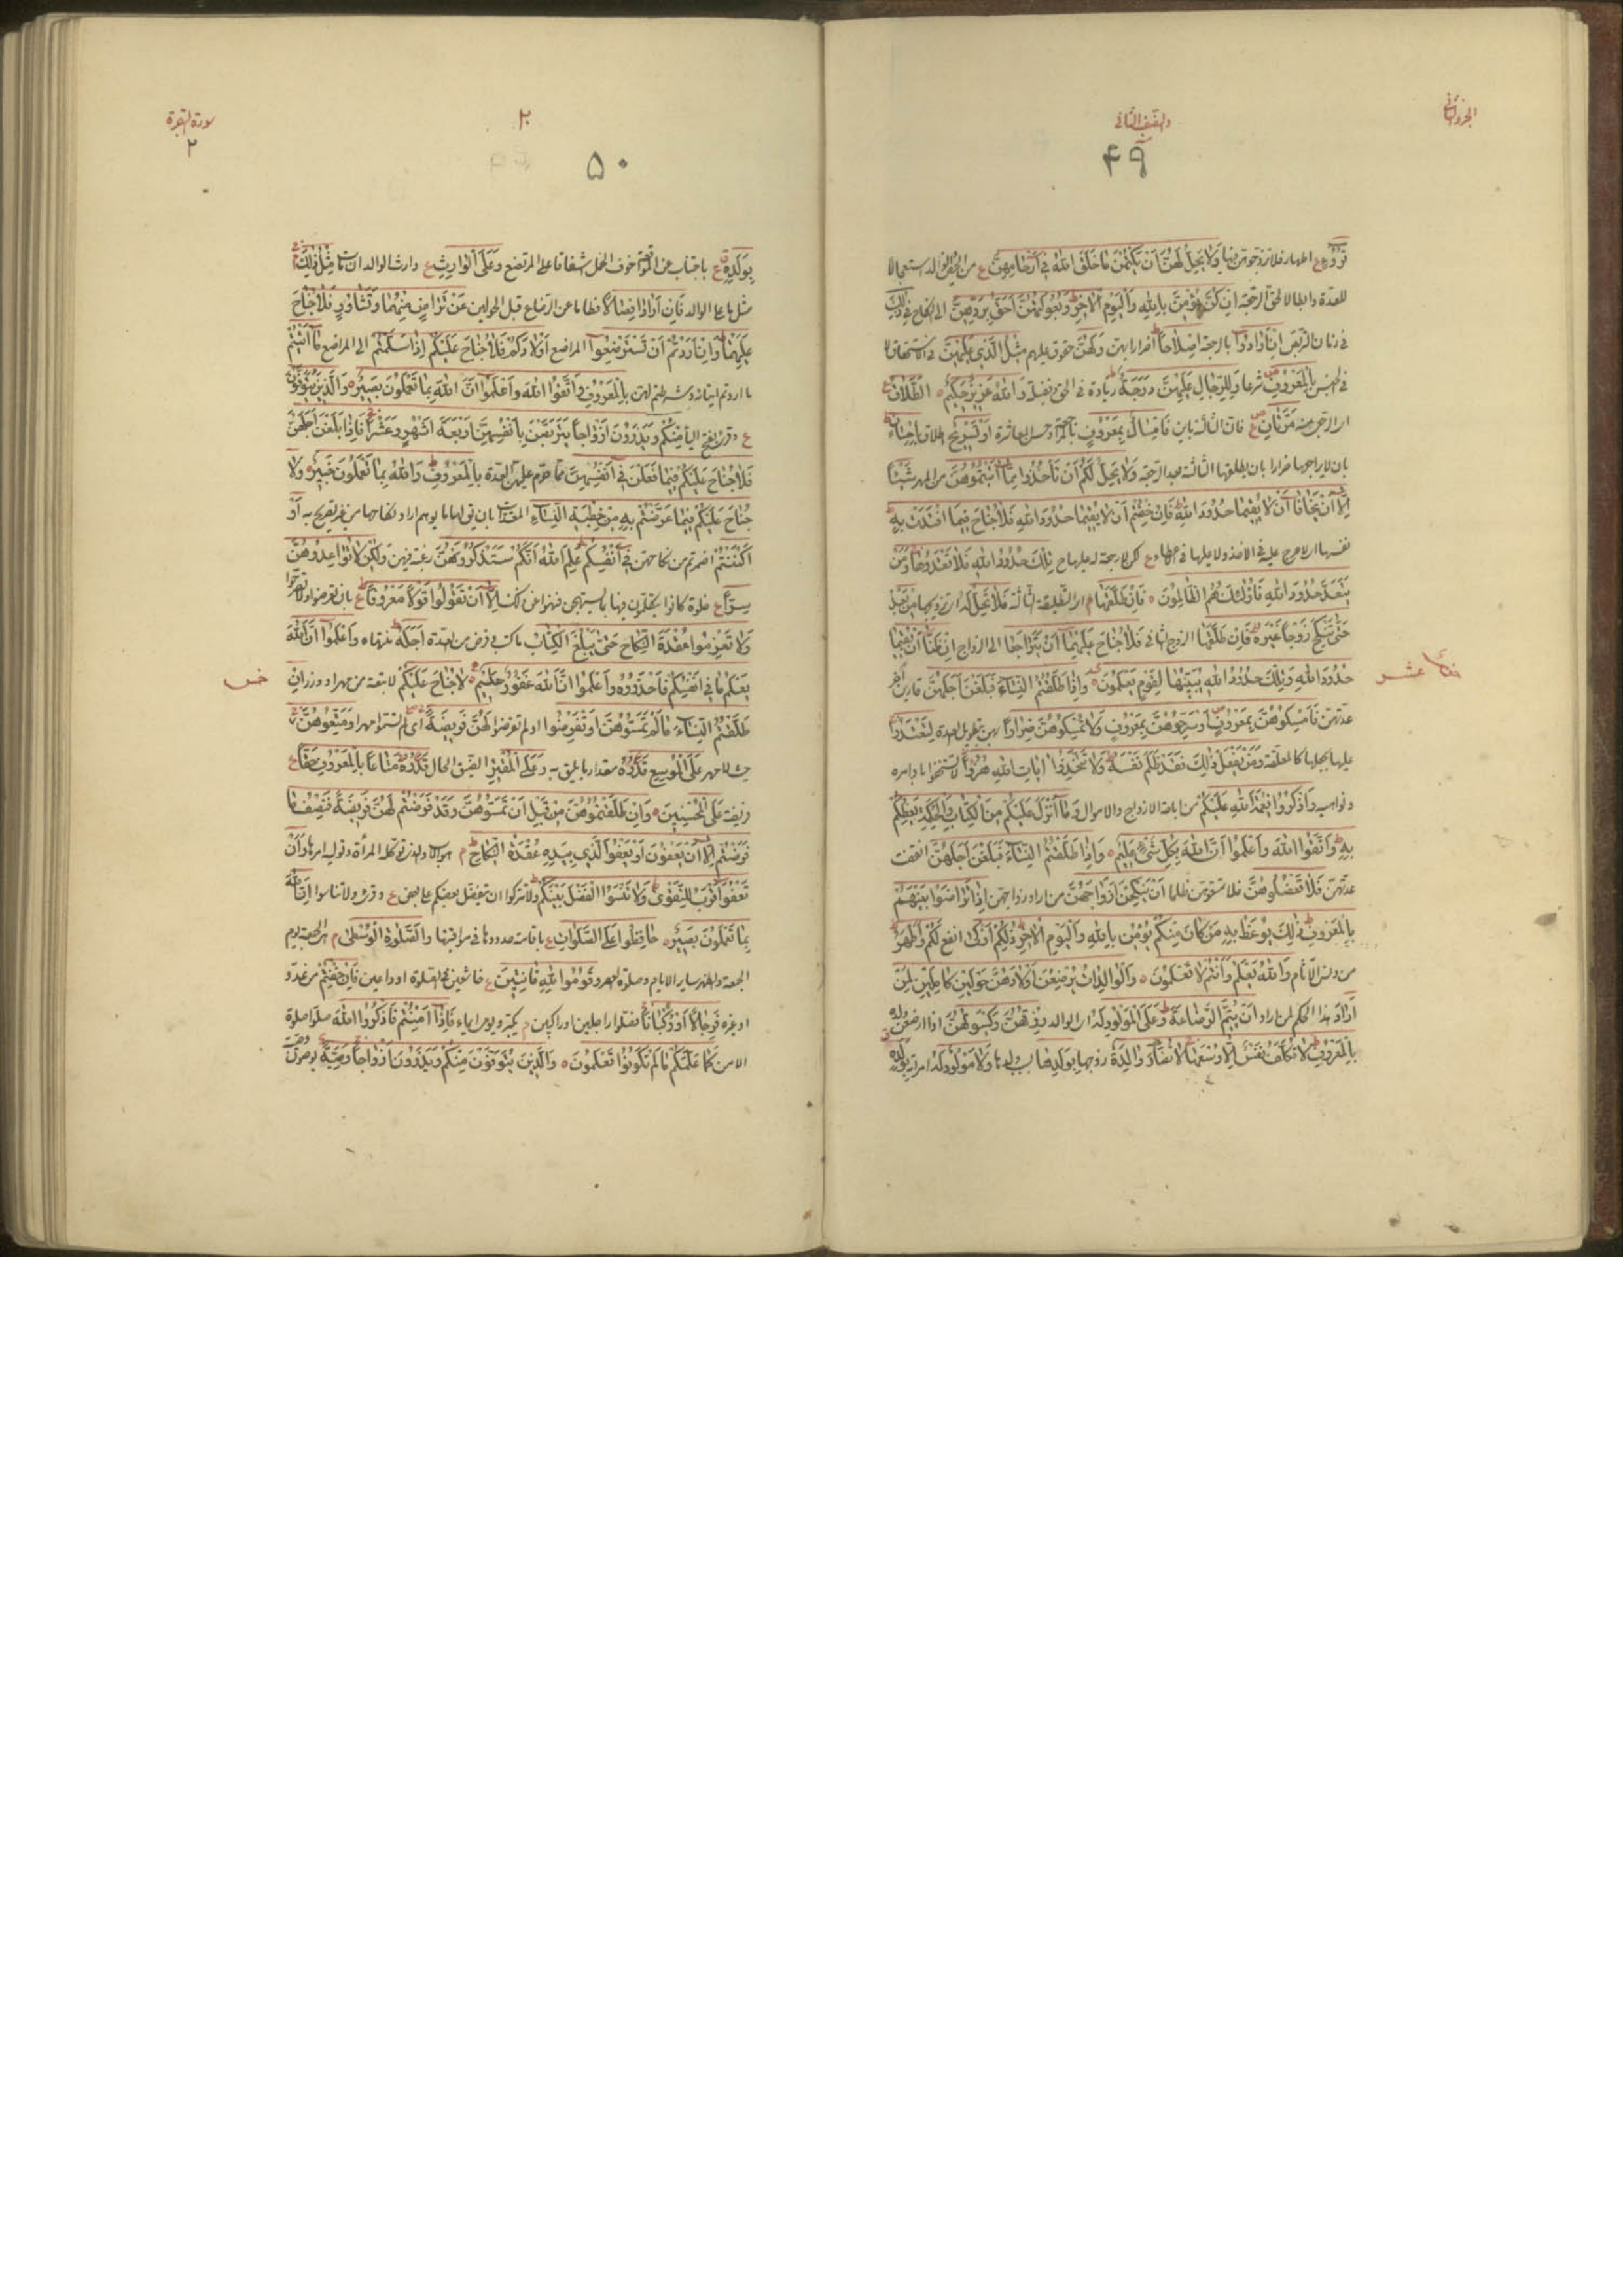 الجزء الثاني
والنصف الثاني
۴۹
قُرُوءٍ ع اطهار فلا تزوجوهن فيها وَلا يَحِلُّ لَهُنَّ أَنْ يَكْتُمْنَ ما خَلَقَ اللهُ فِي أَرْحامِهِنَّ ع من الولد استعجالا
للعدة وابطالا لحق الرجعة إِنْ كُنَّ يُؤْمِنَّ بِاللهِ وَالْيَوْمِ الْآخِرِ ط وَبُعُولَتُهُنَّ أَحَقُّ بِرَدِّهِنَّ الى النكاح فِي ذلِكَ
في زمان التربص إِنْ أَرادُوا بالرجعة إِصْلاحاً ط اضرارا بهن وَلَهُنَّ حقوق عليهم مِثْلُ الَّذِي عَلَيْهِنَّ في الاستحقاق لا
في الجنس بِالْمَعْرُوفِ شرعا وَلِلرِّجالِ عَلَيْهِنَّ دَرَجَةٌ ط زيادة في الحق بفضله وَاللهُ عَزِيزٌ حَكِيمٌ ه الطَّلاقُ
مَرَّتانِ فَإِمْساكٌ بِمَعْرُوفٍ بالمراجعة وحسن المعاشرة أَوْ تَسْرِيحٌ اطلاق بِإِحْسانٍ ط
بان لا يراجعها ضرارا بان يطلقها الثالثة بعد الرجعة وَلا يَحِلُّ لَكُمْ أَنْ تَأْخُذُوا مِمَّا آتَيْتُمُوهُنَّ من المهر شَيْئاً
إِلَّا أَنْ يَخافا أَلَّا يُقِيما حُدُودَ اللهِ ط فَإِنْ خِفْتُمْ أَلَّا يُقِيما حُدُودَ اللهِ فَلا جُناحَ فِيما افْتَدَتْ بِهِ ط
نفسها اى لا حرج عليه في الاخذ ولا عليها في الاعطاء ع تِلْكَ حُدُودُ اللهِ فَلا تَعْتَدُوها وَمَنْ
يَتَعَدَّ حُدُودَ اللهِ فَأُولئِكَ هُمُ الظَّالِمُونَ ه فَإِنْ طَلَّقَها م اى التطليقة الثالثة فَلا تَحِلُّ لَهُ اى تزويجها مِنْ بَعْدُ
حَتَّى تَنْكِحَ زَوْجاً غَيْرَهُ ط فَإِنْ طَلَّقَها الزوج الثاني فَلا جُناحَ عَلَيْهِما أَنْ يَتَراجَعا الى الزواج إِنْ ظَنَّا أَنْ يُقِيما
حُدُودَ اللهِ وَتِلْكَ حُدُودُ اللهِ يُبَيِّنُها لِقَوْمٍ يَعْلَمُونَ ه وَإِذا طَلَّقْتُمُ النِّساءَ فَبَلَغْنَ أَجَلَهُنَّ قاربن آخر
عدتهن فَأَمْسِكُوهُنَّ بِمَعْرُوفٍ أَوْ سَرِّحُوهُنَّ بِمَعْرُوفٍ وَلا تُمْسِكُوهُنَّ ضِراراً بهن بتطويل العدة لِتَعْتَدُوا
عليها بجعلها كالمعلقة وَمَنْ يَفْعَلْ ذلِكَ فَقَدْ ظَلَمَ نَفْسَهُ ط وَلا تَتَّخِذُوا آياتِ اللهِ هُزُواً لا تستخفوا باوامره
ونواهيه وَاذْكُرُوا نِعْمَةَ اللهِ عَلَيْكُمْ من اباحة الازواج والاموال وَما أَنْزَلَ عَلَيْكُمْ مِنَ الْكِتابِ وَالْحِكْمَةِ يَعِظُكُمْ
بِهِ ط وَاتَّقُوا اللهَ وَاعْلَمُوا أَنَّ اللهَ بِكُلِّ شَيْءٍ عَلِيمٌ ه وَإِذا طَلَّقْتُمُ النِّساءَ فَبَلَغْنَ أَجَلَهُنَّ انقضت
عدتهن فَلا تَعْضُلُوهُنَّ فلا تمنعوهن ظلما أَنْ يَنْكِحْنَ أَزْواجَهُنَّ من اراد زواجهن إِذا تَراضَوْا بَيْنَهُمْ
بِالْمَعْرُوفِ ط ذلِكَ يُوعَظُ بِهِ مَنْ كانَ مِنْكُمْ يُؤْمِنُ بِاللهِ وَالْيَوْمِ الْآخِرِ ط ذلِكُمْ أَزْكى انفع لَكُمْ وَأَطْهَرُ ط
من دنس الآثام وَاللهُ يَعْلَمُ وَأَنْتُمْ لا تَعْلَمُونَ ه وَالْوالِداتُ يُرْضِعْنَ أَوْلادَهُنَّ حَوْلَيْنِ كامِلَيْنِ لِمَنْ
أَرادَ هذا الحكم لمن اراد أَنْ يُتِمَّ الرَّضاعَةَ ط وَعَلَى الْمَوْلُودِ لَهُ اى الوالد رِزْقُهُنَّ وَكِسْوَتُهُنَّ اذا ارضعن ولده
بِالْمَعْرُوفِ ط لا تُكَلَّفُ نَفْسٌ إِلَّا وُسْعَها لا تُضَارَّ والِدَةٌ زوجها بِوَلَدِها وَلا مَوْلُودٌ لَهُ امرأته بِوَلَدِهِ
سورة البقرة
۲
۲
۵۰
بِوَلَدِهِ ع باجتناب عن خوف الحمل اشفاقا على المرتضع وَعَلَى الْوارِثِ ع وارث الوالد ان مات مِثْلُ ذلِكَ ج
مثل ما على الوالد فَإِنْ أَرادا فِصالاً فطاما عن الرضاع قبل الحولين عَنْ تَراضٍ مِنْهُما وَتَشاوُرٍ فَلا جُناحَ
عَلَيْهِما ط وَإِنْ أَرَدْتُمْ أَنْ تَسْتَرْضِعُوا المراضع أَوْلادَكُمْ فَلا جُناحَ عَلَيْكُمْ إِذا سَلَّمْتُمْ الى المراضع ما آتَيْتُمْ
ما اردتم ايتائه بِالْمَعْرُوفِ وَاتَّقُوا اللهَ وَاعْلَمُوا أَنَّ اللهَ بِما تَعْمَلُونَ بَصِيرٌ ه وَالَّذِينَ يُتَوَفَّوْنَ
ع وقرئ بفتح الياء مِنْكُمْ وَيَذَرُونَ أَزْواجاً يَتَرَبَّصْنَ بِأَنْفُسِهِنَّ أَرْبَعَةَ أَشْهُرٍ وَعَشْراً ج فَإِذا بَلَغْنَ أَجَلَهُنَّ
فَلا جُناحَ عَلَيْكُمْ فِيما فَعَلْنَ فِي أَنْفُسِهِنَّ مما حرم عليهن العدة بِالْمَعْرُوفِ ط وَاللهُ بِما تَعْمَلُونَ خَبِيرٌ ه وَلا
جُناحَ عَلَيْكُمْ فِيما عَرَّضْتُمْ بِهِ مِنْ خِطْبَةِ النِّساءِ المعتدات بان تقولوا لها ما يوهم ارادة نكاحها من غير تصريح به أَوْ
أَكْنَنْتُمْ اضمرتم من نكاحهن فِي أَنْفُسِكُمْ ط عَلِمَ اللهُ أَنَّكُمْ سَتَذْكُرُونَهُنَّ رغبة فيهن وَلكِنْ لا تُواعِدُوهُنَّ
سِرًّا ع خلوة كانوا فيها بما يستهجن فنهوا عن ذلك إِلَّا أَنْ تَقُولُوا قَوْلاً مَعْرُوفاً ط ع بان تعرضوا ولا تصرحوا
وَلا تَعْزِمُوا عُقْدَةَ النِّكاحِ حَتَّى يَبْلُغَ الْكِتابُ ما كتب وفرض من العدة أَجَلَهُ ط منتهاه وَاعْلَمُوا أَنَّ اللهَ
يَعْلَمُ ما فِي أَنْفُسِكُمْ فَاحْذَرُوهُ وَاعْلَمُوا أَنَّ اللهَ غَفُورٌ حَلِيمٌ ه لا جُناحَ عَلَيْكُمْ لا تبعة من مهر او وزر إِنْ
طَلَّقْتُمُ النِّساءَ ما لَمْ تَمَسُّوهُنَّ أَوْ تَفْرِضُوا او لم تفرضوا لَهُنَّ فَرِيضَةً اى لم تسموا مهرا وَمَتِّعُوهُنَّ
حيث لا مهر عَلَى الْمُوسِعِ قَدَرُهُ مقدار ما يليق به وَعَلَى الْمُقْتِرِ الضيق الحال قَدَرُهُ مَتاعاً بِالْمَعْرُوفِ حَقًّا ع
فريضة عَلَى الْمُحْسِنِينَ ه وَإِنْ طَلَّقْتُمُوهُنَّ مِنْ قَبْلِ أَنْ تَمَسُّوهُنَّ وَقَدْ فَرَضْتُمْ لَهُنَّ فَرِيضَةً فَنِصْفُ ما
فَرَضْتُمْ إِلَّا أَنْ يَعْفُونَ أَوْ يَعْفُوَ الَّذِي بِيَدِهِ عُقْدَةُ النِّكاحِ ط م هو الاب والذي توكله المرأة وتوليه امرها وَأَنْ
تَعْفُوا أَقْرَبُ لِلتَّقْوى ط وَلا تَنْسَوُا الْفَضْلَ بَيْنَكُمْ ط ولا تتركوا ان يتفضل بعضكم على بعض ع وقرئ ولا تناسوا إِنَّ اللهَ
بِما تَعْمَلُونَ بَصِيرٌ ه حافِظُوا عَلَى الصَّلَواتِ ع باقامة حدودها في مواقيتها وَالصَّلاةِ الْوُسْطى م هى الجمعة يوم
الجمعة والظهر ساير الايام وصلوة العصر وَقُومُوا لِلَّهِ قانِتِينَ ع خاشعين في الصلوة او داعين فَإِنْ خِفْتُمْ من عدو
او غيره فَرِجالاً أَوْ رُكْباناً ج فصلوا راجلين او راكبين م يكبر ويومي ايماء فَإِذا أَمِنْتُمْ فَاذْكُرُوا اللهَ صلوا صلوة
الامن كَما عَلَّمَكُمْ ما لَمْ تَكُونُوا تَعْلَمُونَ ه وَالَّذِينَ يُتَوَفَّوْنَ مِنْكُمْ وَيَذَرُونَ أَزْواجاً وَصِيَّةً يوصون